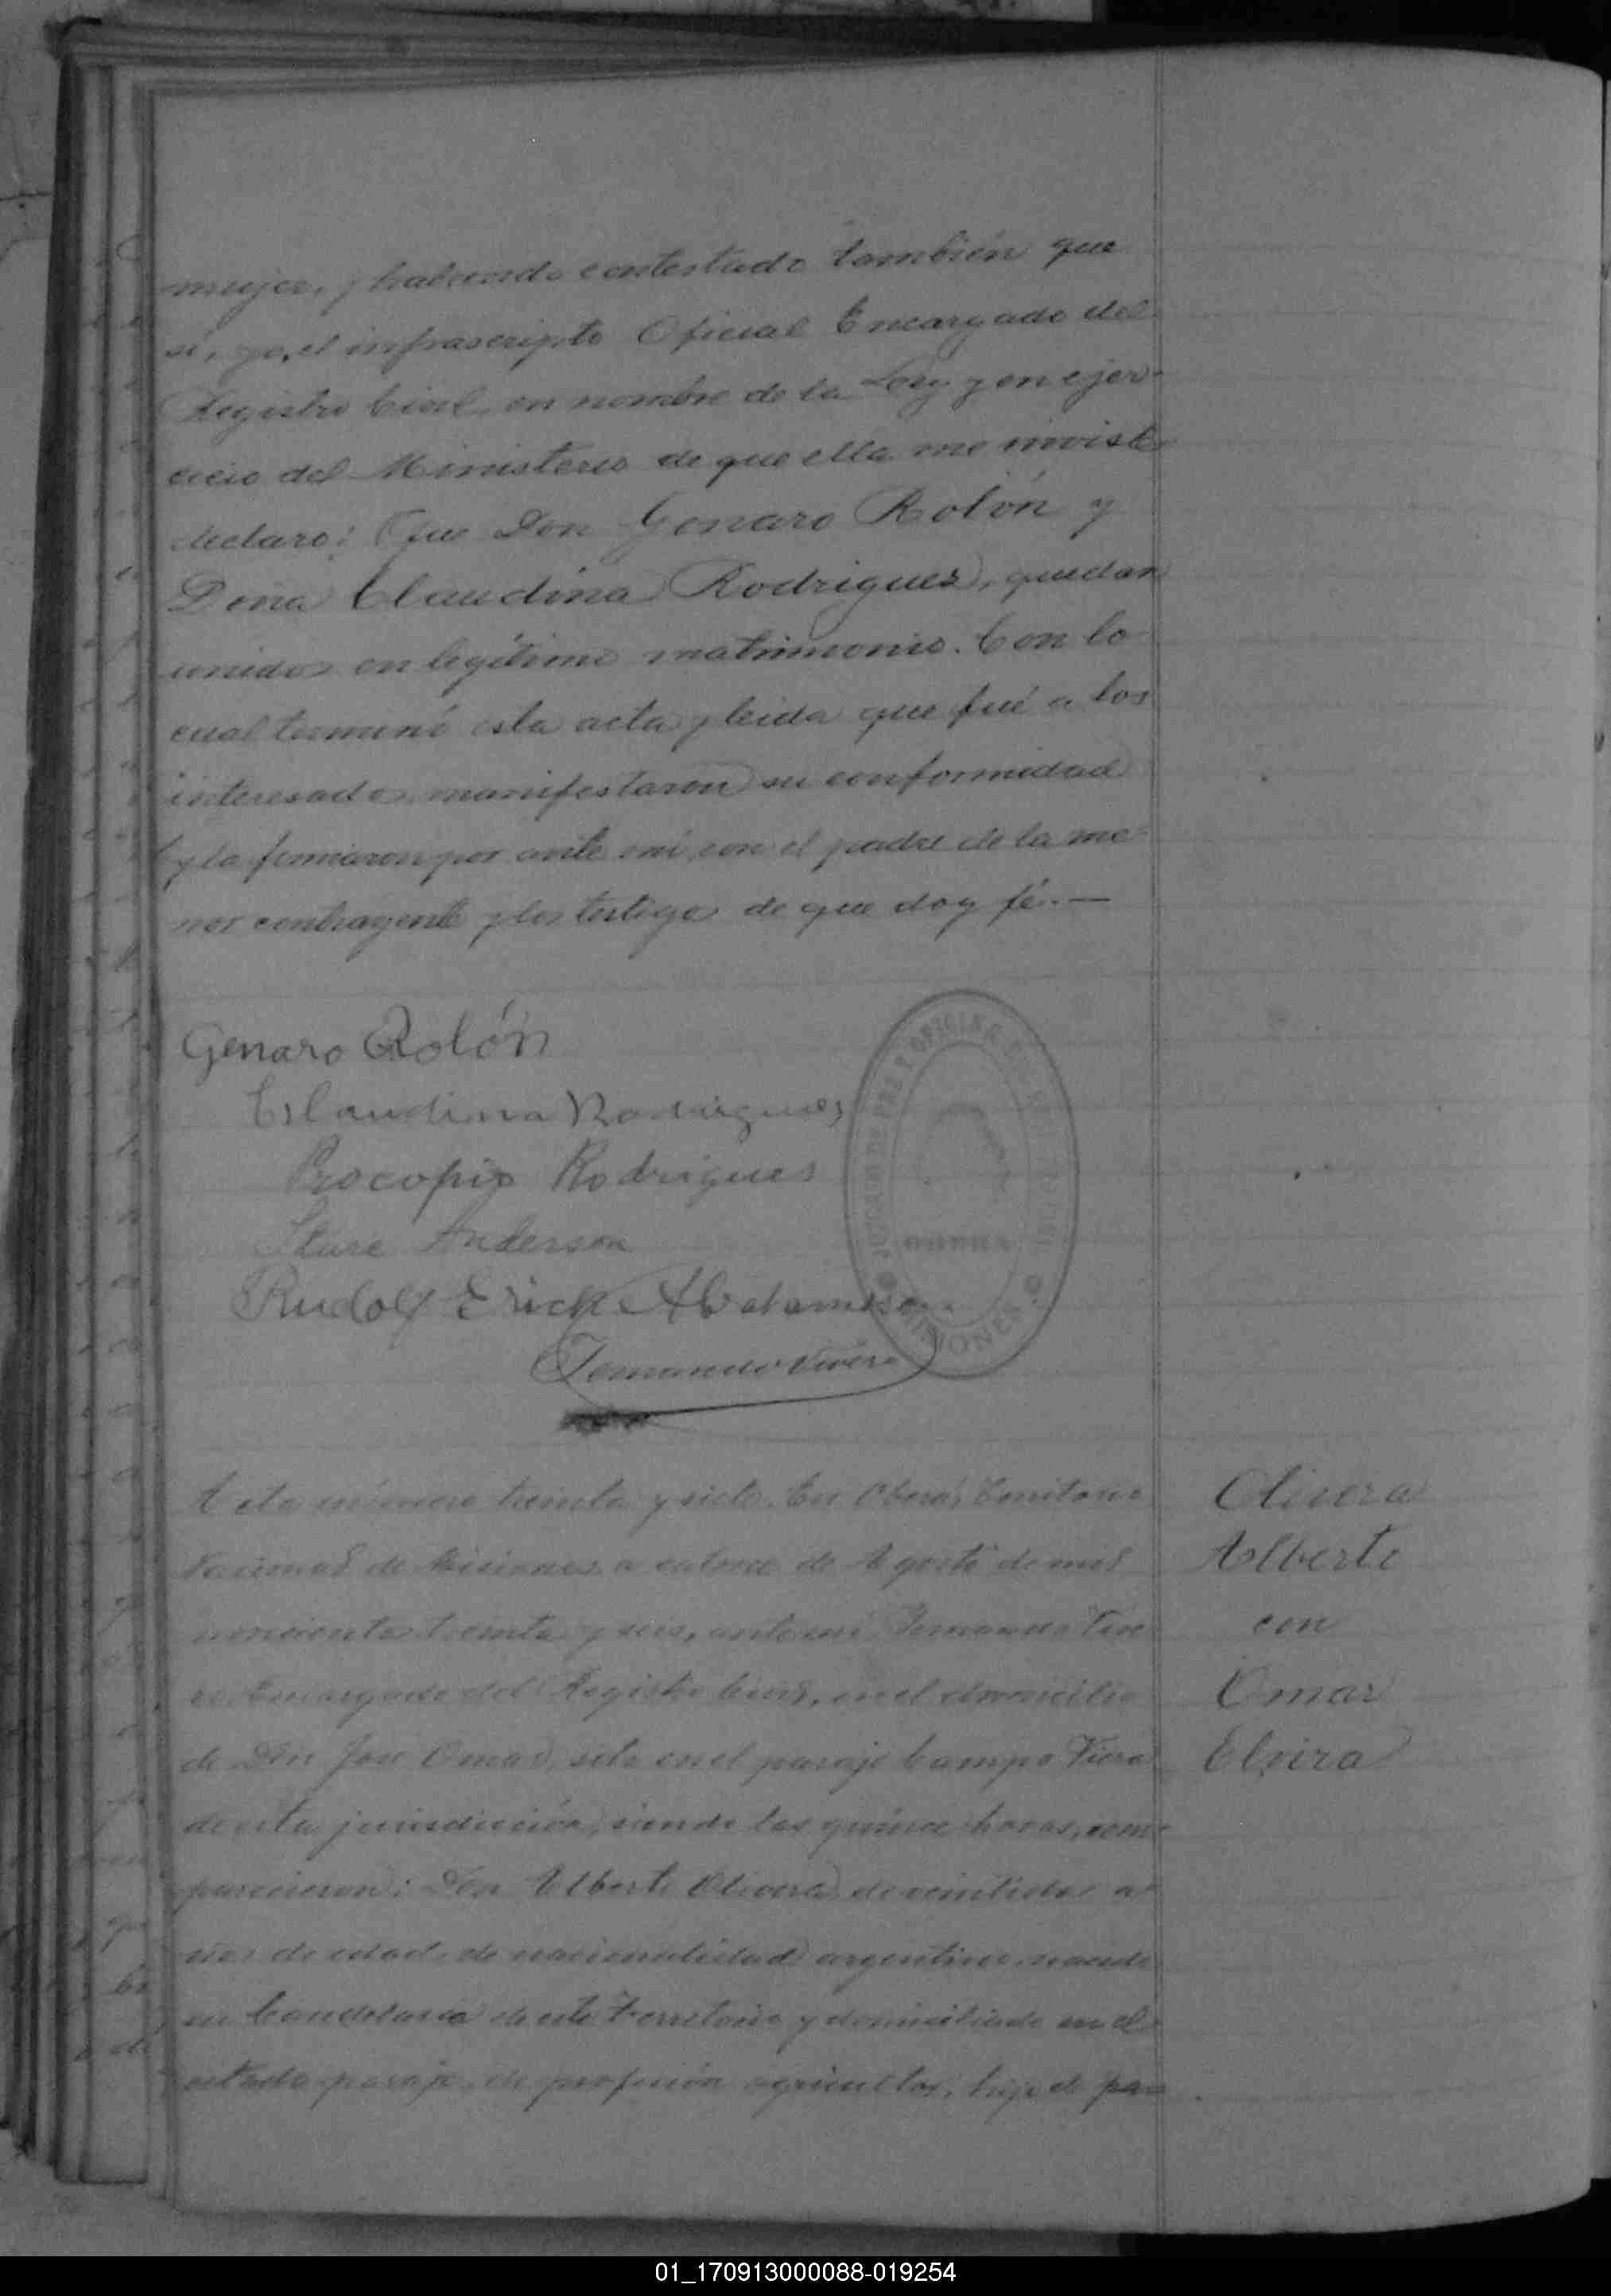 mujer, y habiendo contestado también que
sí, yo, el infrascripto Oficial Encargado del
Registro Civil, en nombre de la Ley y en ejer-
cicio del Ministerio de que ella me inviste
declaro: Que Don Genaro Rolón y
Doña Claudina Rodrigues, quedan
unidos en legítimo matrimonio. Con lo
cual terminó esta acta y leida que fué a los
interesados, manifestaron su conformidad
y la firmaron por ante mí, con el padre de la me-
nor contrayente y los testigos de que doy fé.—
Genaro Rolón
Claudina Rodrigues
Procopio Rodrigues
Sture Anderson
Rudolf Erick
JUZGADO DE PAZ Y OFICINA
OBERA
MISIONES
Acta número treinta y siete. En Oberá, Territorio
Nacional de Misiones a catorce de Agosto de mil
novecientos treinta y seis, ante mí
Encargado del Registro Civil, en el domicilio
de Don José Omar, sito en el paraje Campo Viera
de esta jurisdicción, siendo las quince horas, com-
parecieron: Don Alberto Olivera, de veintidos a-
ños de edad, de nacionalidad argentino, nacido
en Candelaria de este Territorio y domiciliado en el
citado paraje, de profesión agricultor, hijo de
Olivera
Alberto
con
Omar
Elvira
01_170913000088-019254